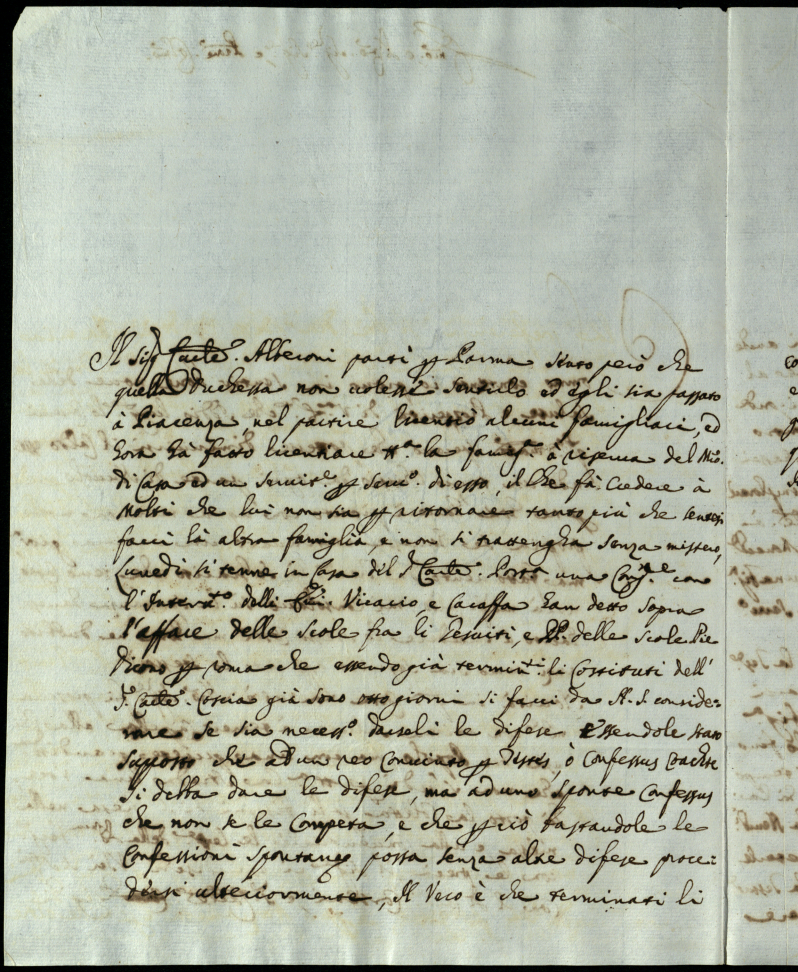 Il Sig.r Card.le Alberoni partì per Parma stato però che
quella Duchessa non volessi sentirlo ed egli sia passato
à Piacenza, nel partire licentiò alcuni famigliari, ed
hora hà fatto licentiare tt.a la famig.a à riserva del M.o
di Casa ed un servit.e per serv.o di essa, il che fà credere à
molti che lui non sia per ritornare tanto più che
facci là altra famiglia, e non si trattengha senza mistero,
Lunedì si tenne in Casa del S.r Card.le Porzia una Cong.ne con
l'Intervt.o delli Vicario, e Caraffa han detto sopra
l'affare delle scole fra li Gesuiti, e PP. delle Scole Pie
Dicono per roma che essendo già termin.ti li Costituti dell'
S.r Card.le Coscia già sono otto giorni si facci da N. S. conside-
rare se sia necess.o darseli le difese Essendole stato
supposto che ad un reo Convinto per testes, ò Confessus
si debba dare le difese, mà ad uno sponte Confessus
che non se le Competa, e che per ciò bastandole le
Confessioni spontanee possa senza altre difese proce-
dersi ulteriormente, Il Vero è che terminati li